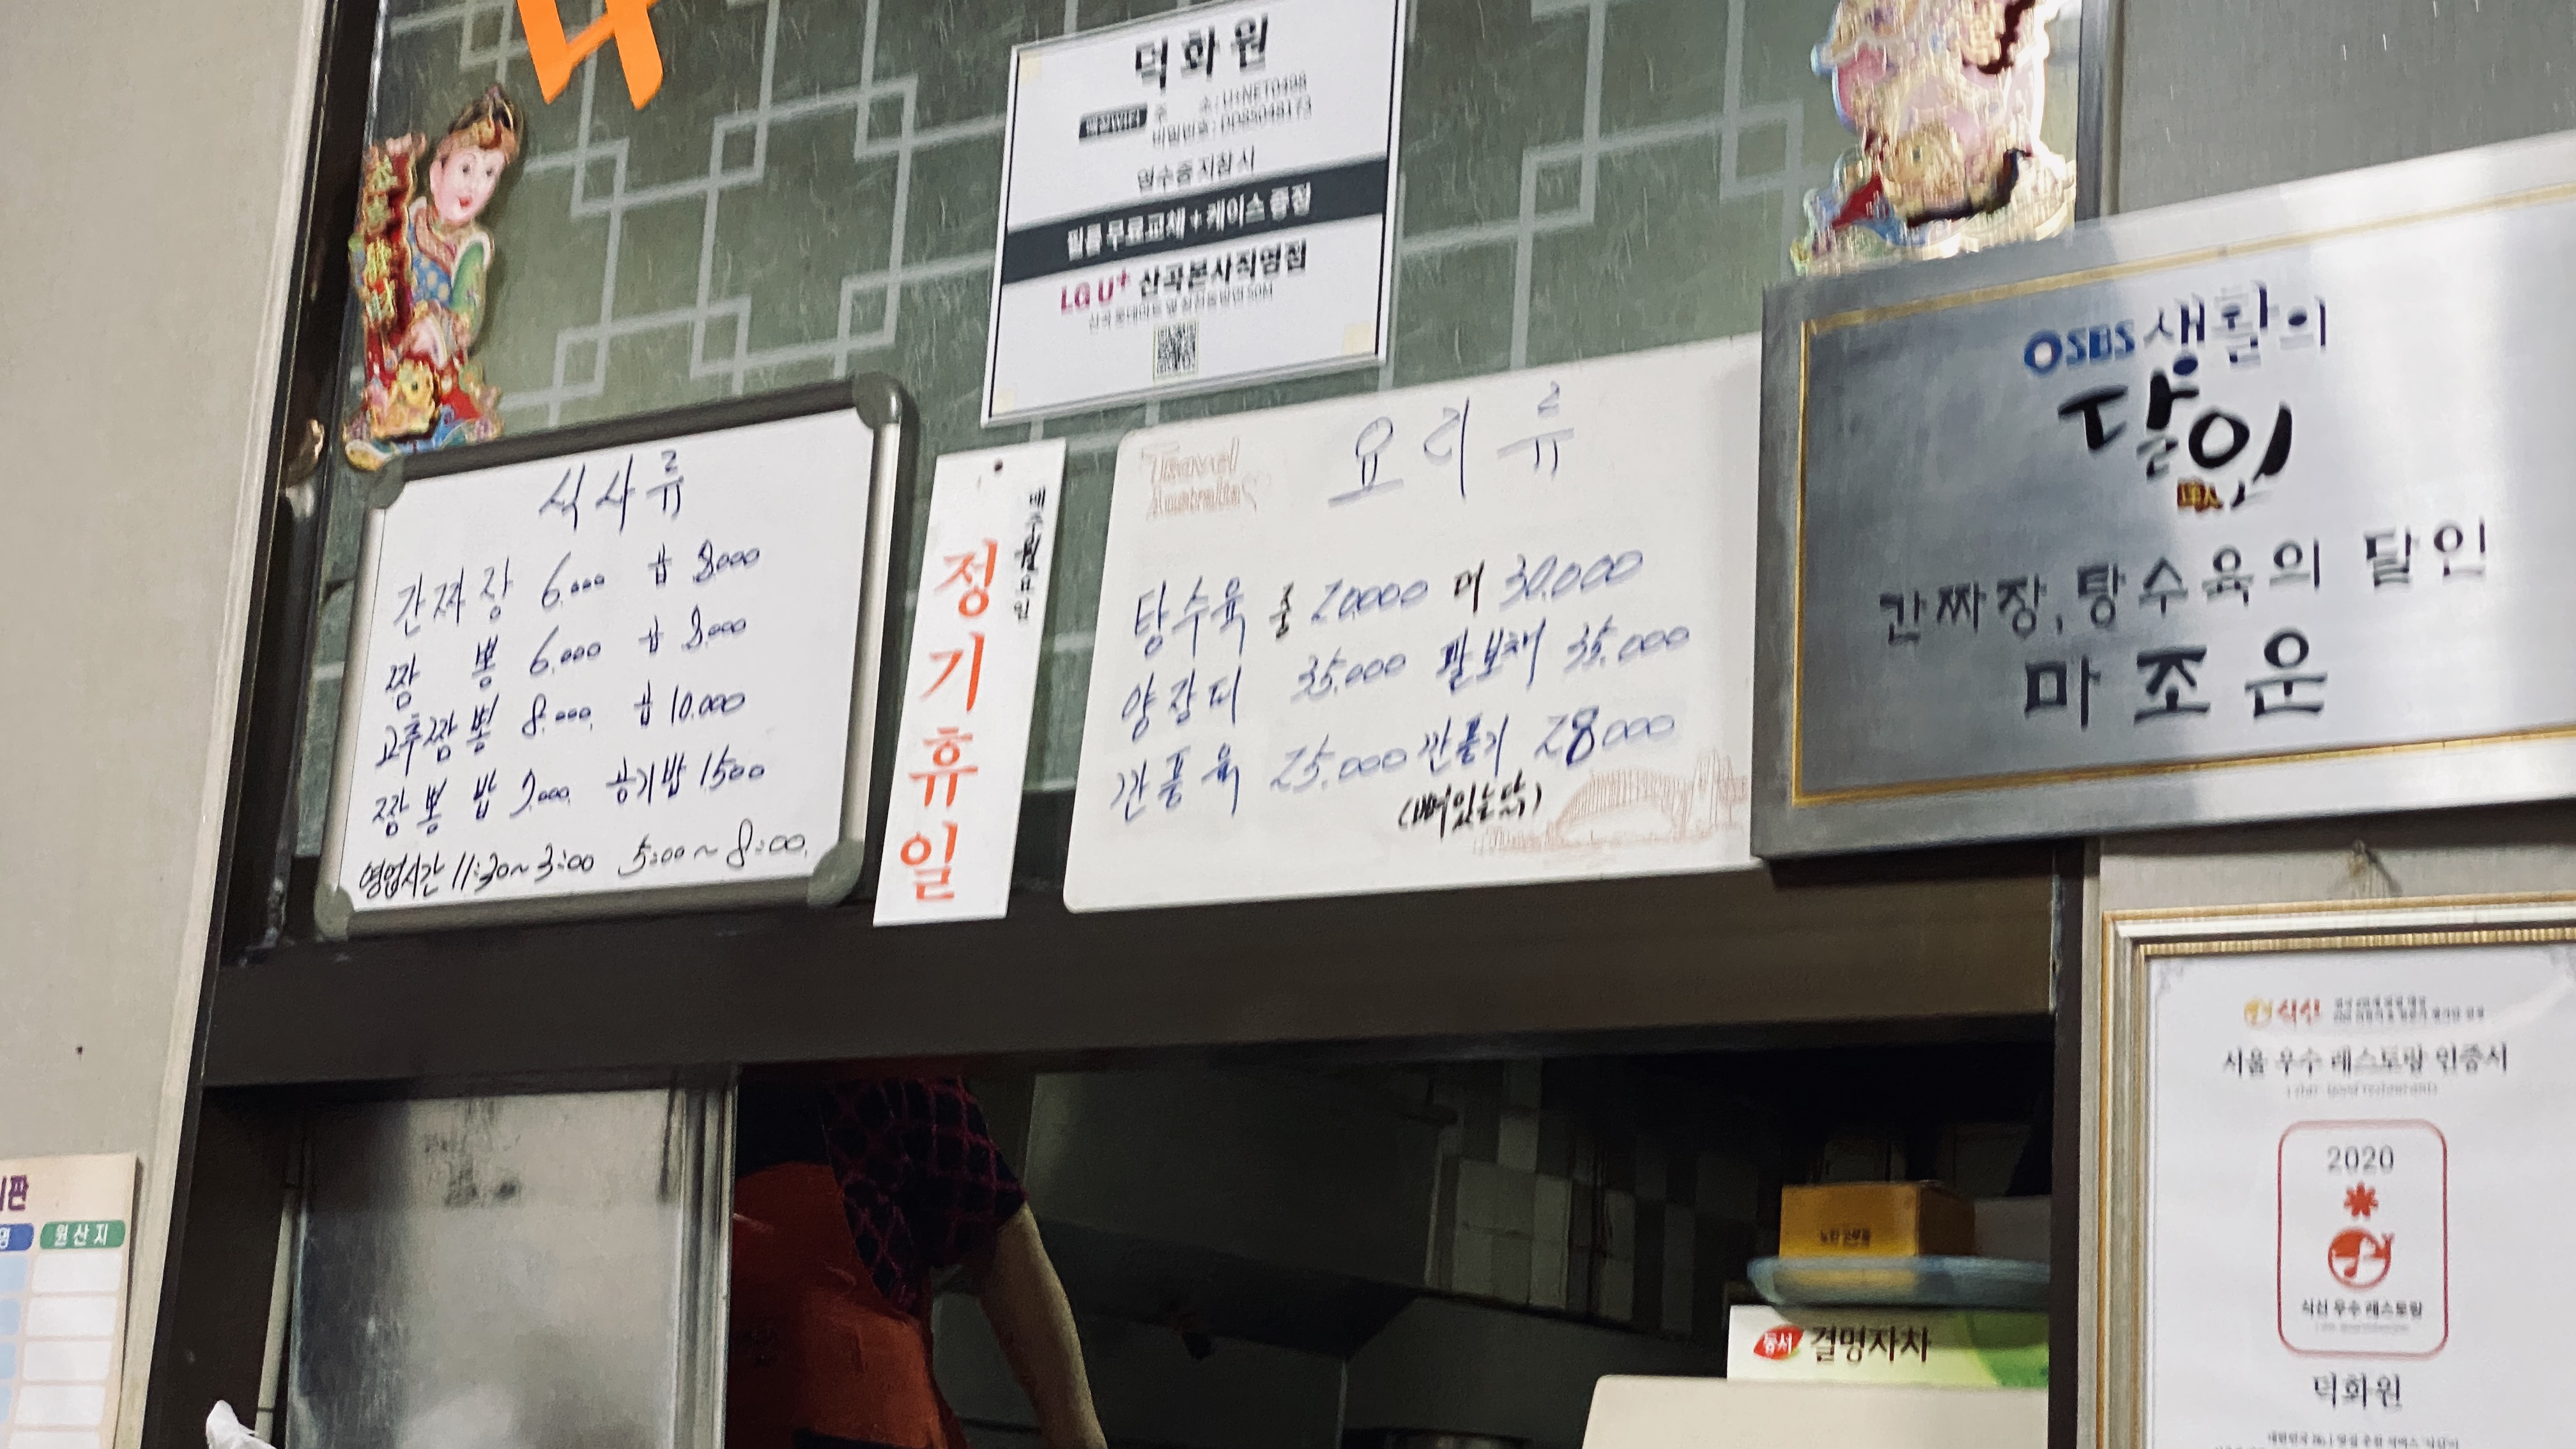 덕화원
매장WIFI 주 소: U+NET0498
비밀번호: DD85048173
영수증 지참 시
필름 무료교체 + 케이스 증정
LG U+ 산곡본사직영점
식사류
간짜장 6.000 곱 8000
짬뽕 6.000 곱 8.000
고추짬뽕 8.000 곱 10.000
짬뽕밥 7.000 공기밥 1500
영업시간 11:30~3:00 5:00~8:00
매주 월요일
정기휴일
Travel
Australia
요리류
탕수육 중 20000 대 30.000
양장피 35.000 팔보채 35.000
깐풍육 25.000 깐풍기 28000
(뼈있는닭)
SBS 생활의
달인
達人
간짜장, 탕수육의 달인
마조운
식신
서울 우수 레스토랑 인증서
2020
식신 우수 레스토랑
덕화원
원산지
동서 결명자차